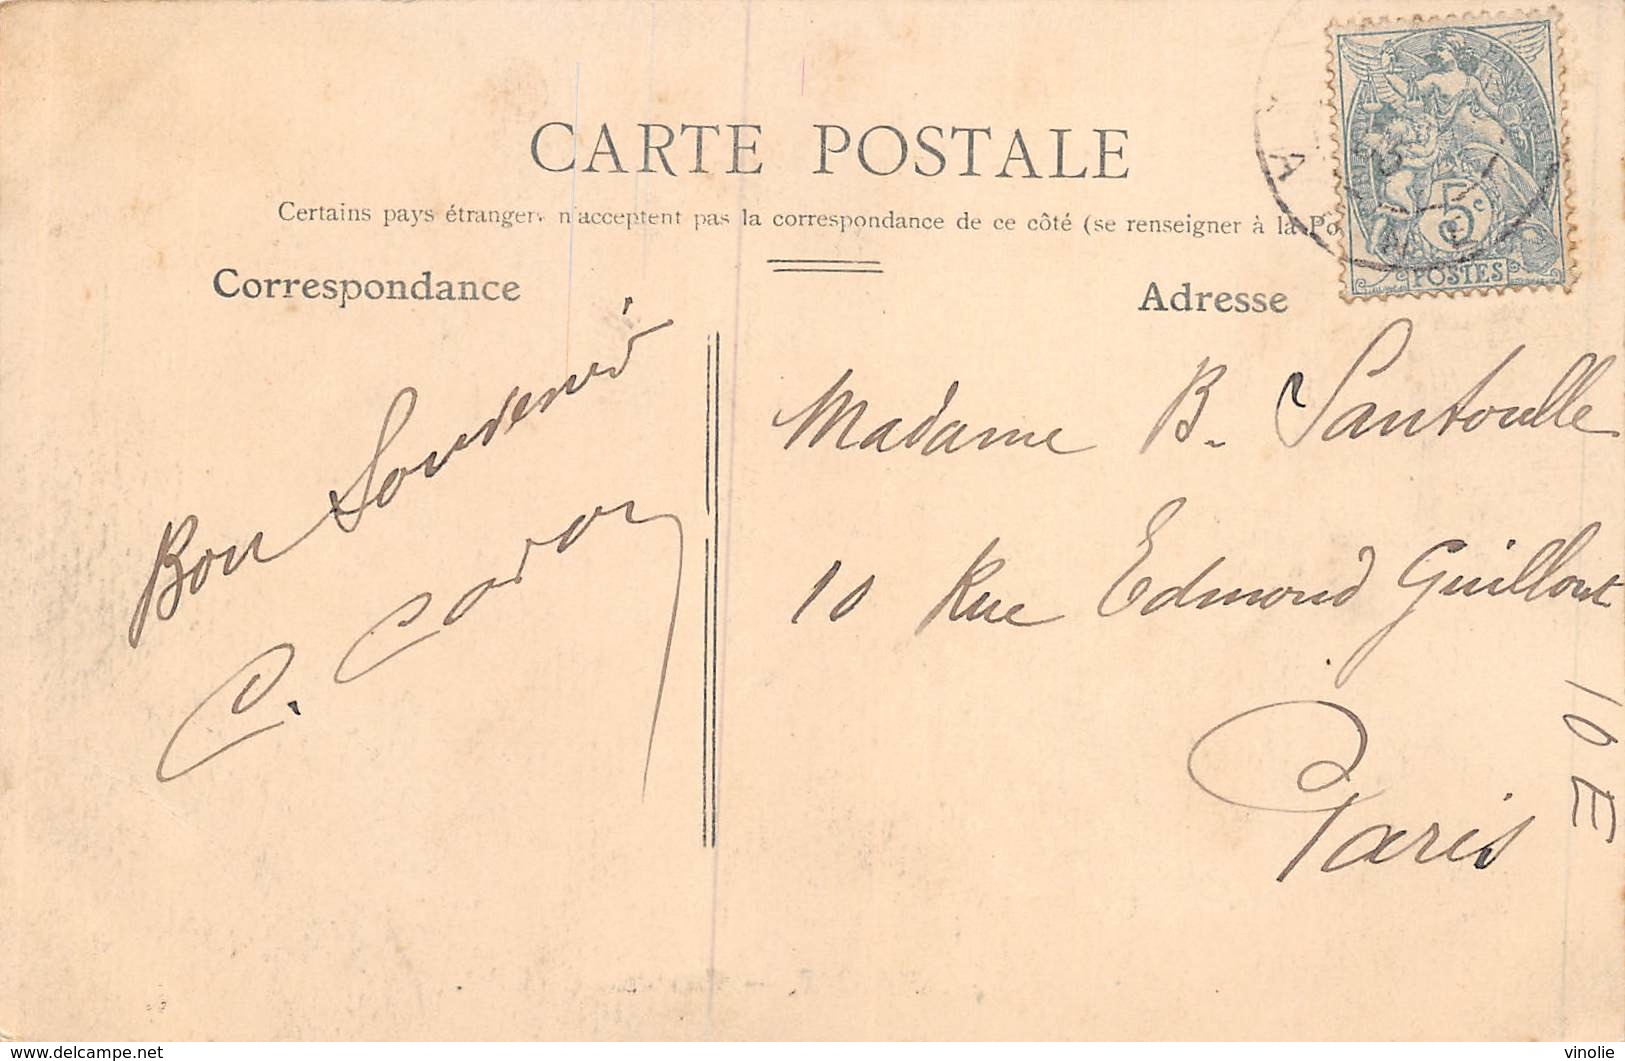 CARTE POSTALE
Certains pays étrangers n'acceptent pas la correspondance de ce côté (se renseigner à la Po
Correspondance
Adresse
POSTES
5c
Bon Souvenir
C.
Madame B. Santoulle
10 Rue Edmond Guillout
Paris
10 E
www.delcampe.net
vinolie